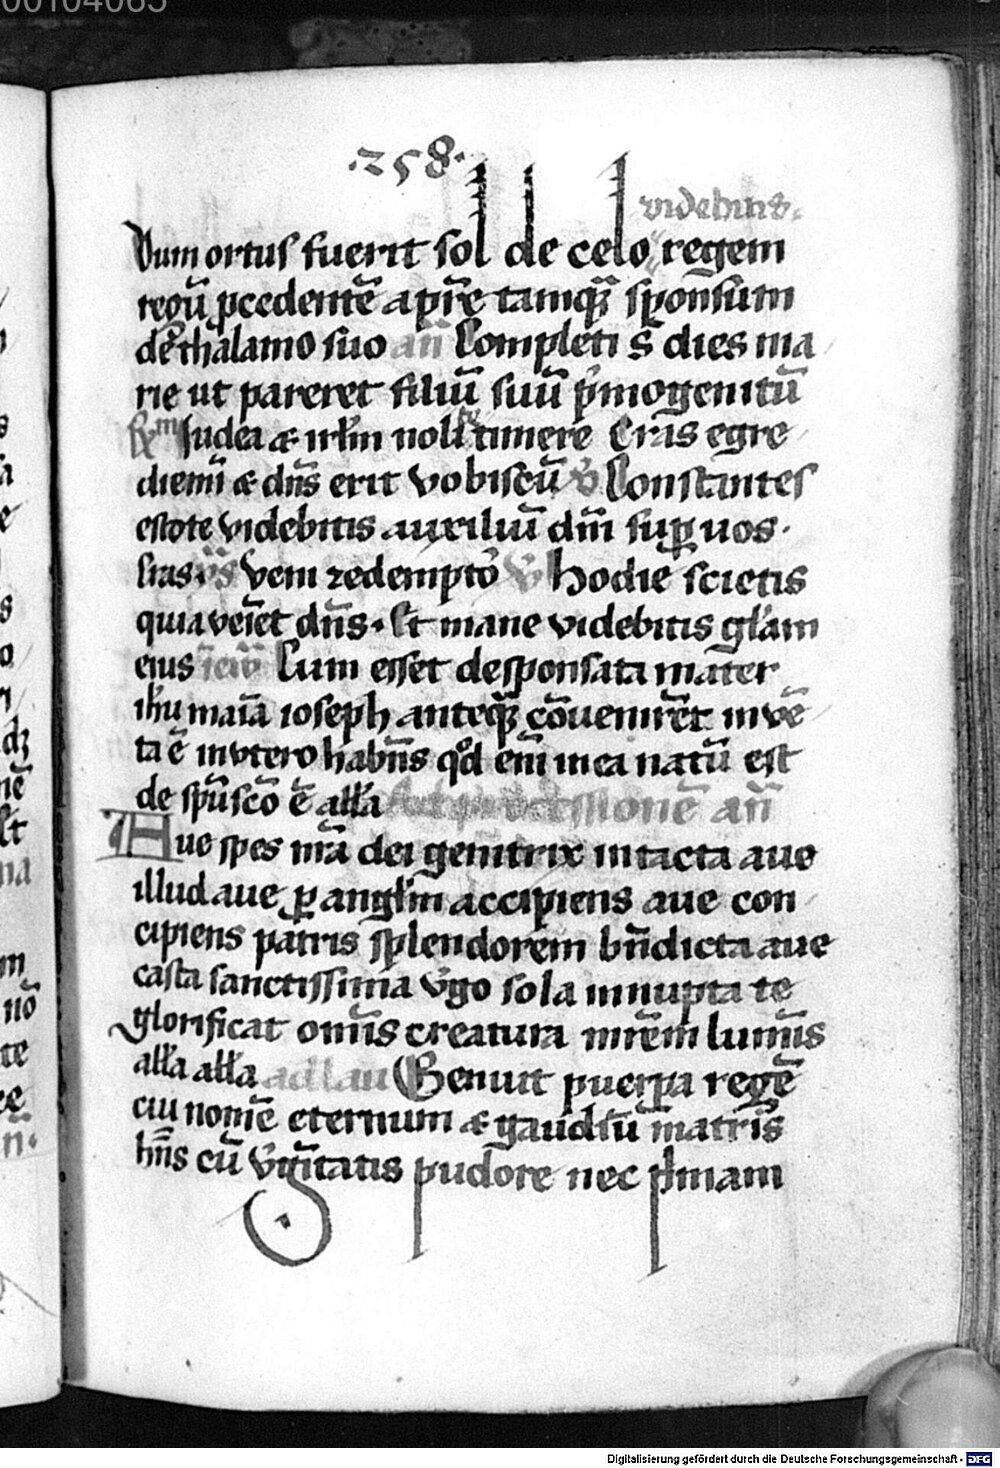 00104065
·258·
videbitis.
Dum ortus fuerit sol de celo regem
regū p̄cedentē a pr̄e tamqȝ sponsum
de thalamo suo an̄ Completi s̄ dies ma
rie ut pareret filiū suū p̄mogenitū
Judea & irl̄m nolite timere Cras egre
diemī & dn̄s erit vobiscū v̄ Constantes
estote videbitis auxiliū dn̄i sup̱ uos.
Cras. v̄s veni redemptō v̄ hodie scietis
quia veīet dn̄s. Et mane videbitis gl̄am
eius Cum esset desponsata mater
ih̄u maīa ioseph anteqȝ cōuenirēt invē
ta ē in vtero habn̄s qd̊ enī in ea natū est
de spū scō ē all̄a Ad p̱cessionē an̄
Aue spes nr̄a dei genītrix intacta aue
illud aue p̱ angl̄m accipiens aue con
cipiens patris splendorem bn̄dicta aue
casta sanctissima v̄go sola innupta te
glorificat om̄is creatura mr̄em lumīs
all̄a all̄a ad lau Genuit puerp̱a regē
cui nomē eternum & gaudiū matris
hn̄s cū v̄gītatis pudore nec p̄mam
Digitalisierung gefördert durch die Deutsche Forschungsgemeinschaft - DFG